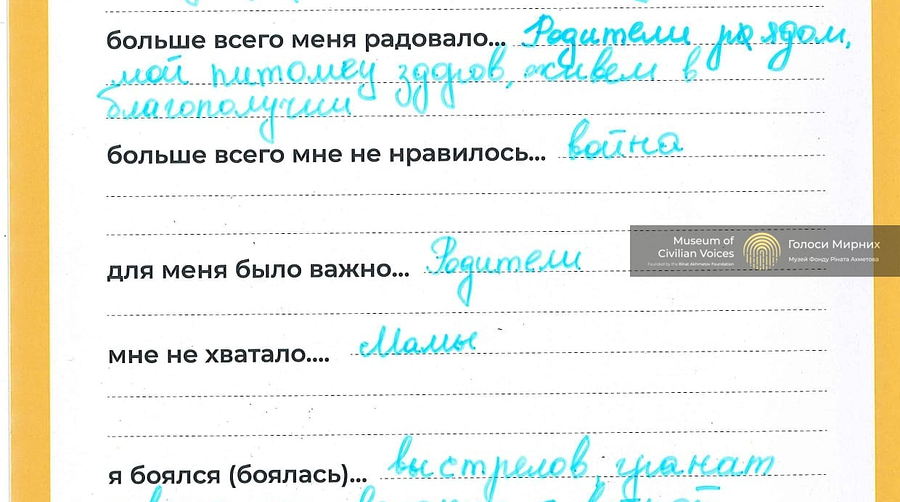 больше всего меня радовало... Родители рядом,
мой питомец здоров, живем в
благополучии
больше всего мне не нравилось... война
Museum of
Civilian Voices
Голоси Мирних
Музей Фонду Ріната Ахметова
для меня было важно... Родители
мне не хватало.... Мамы
я боялся (боялась)... выстрелов, гранат